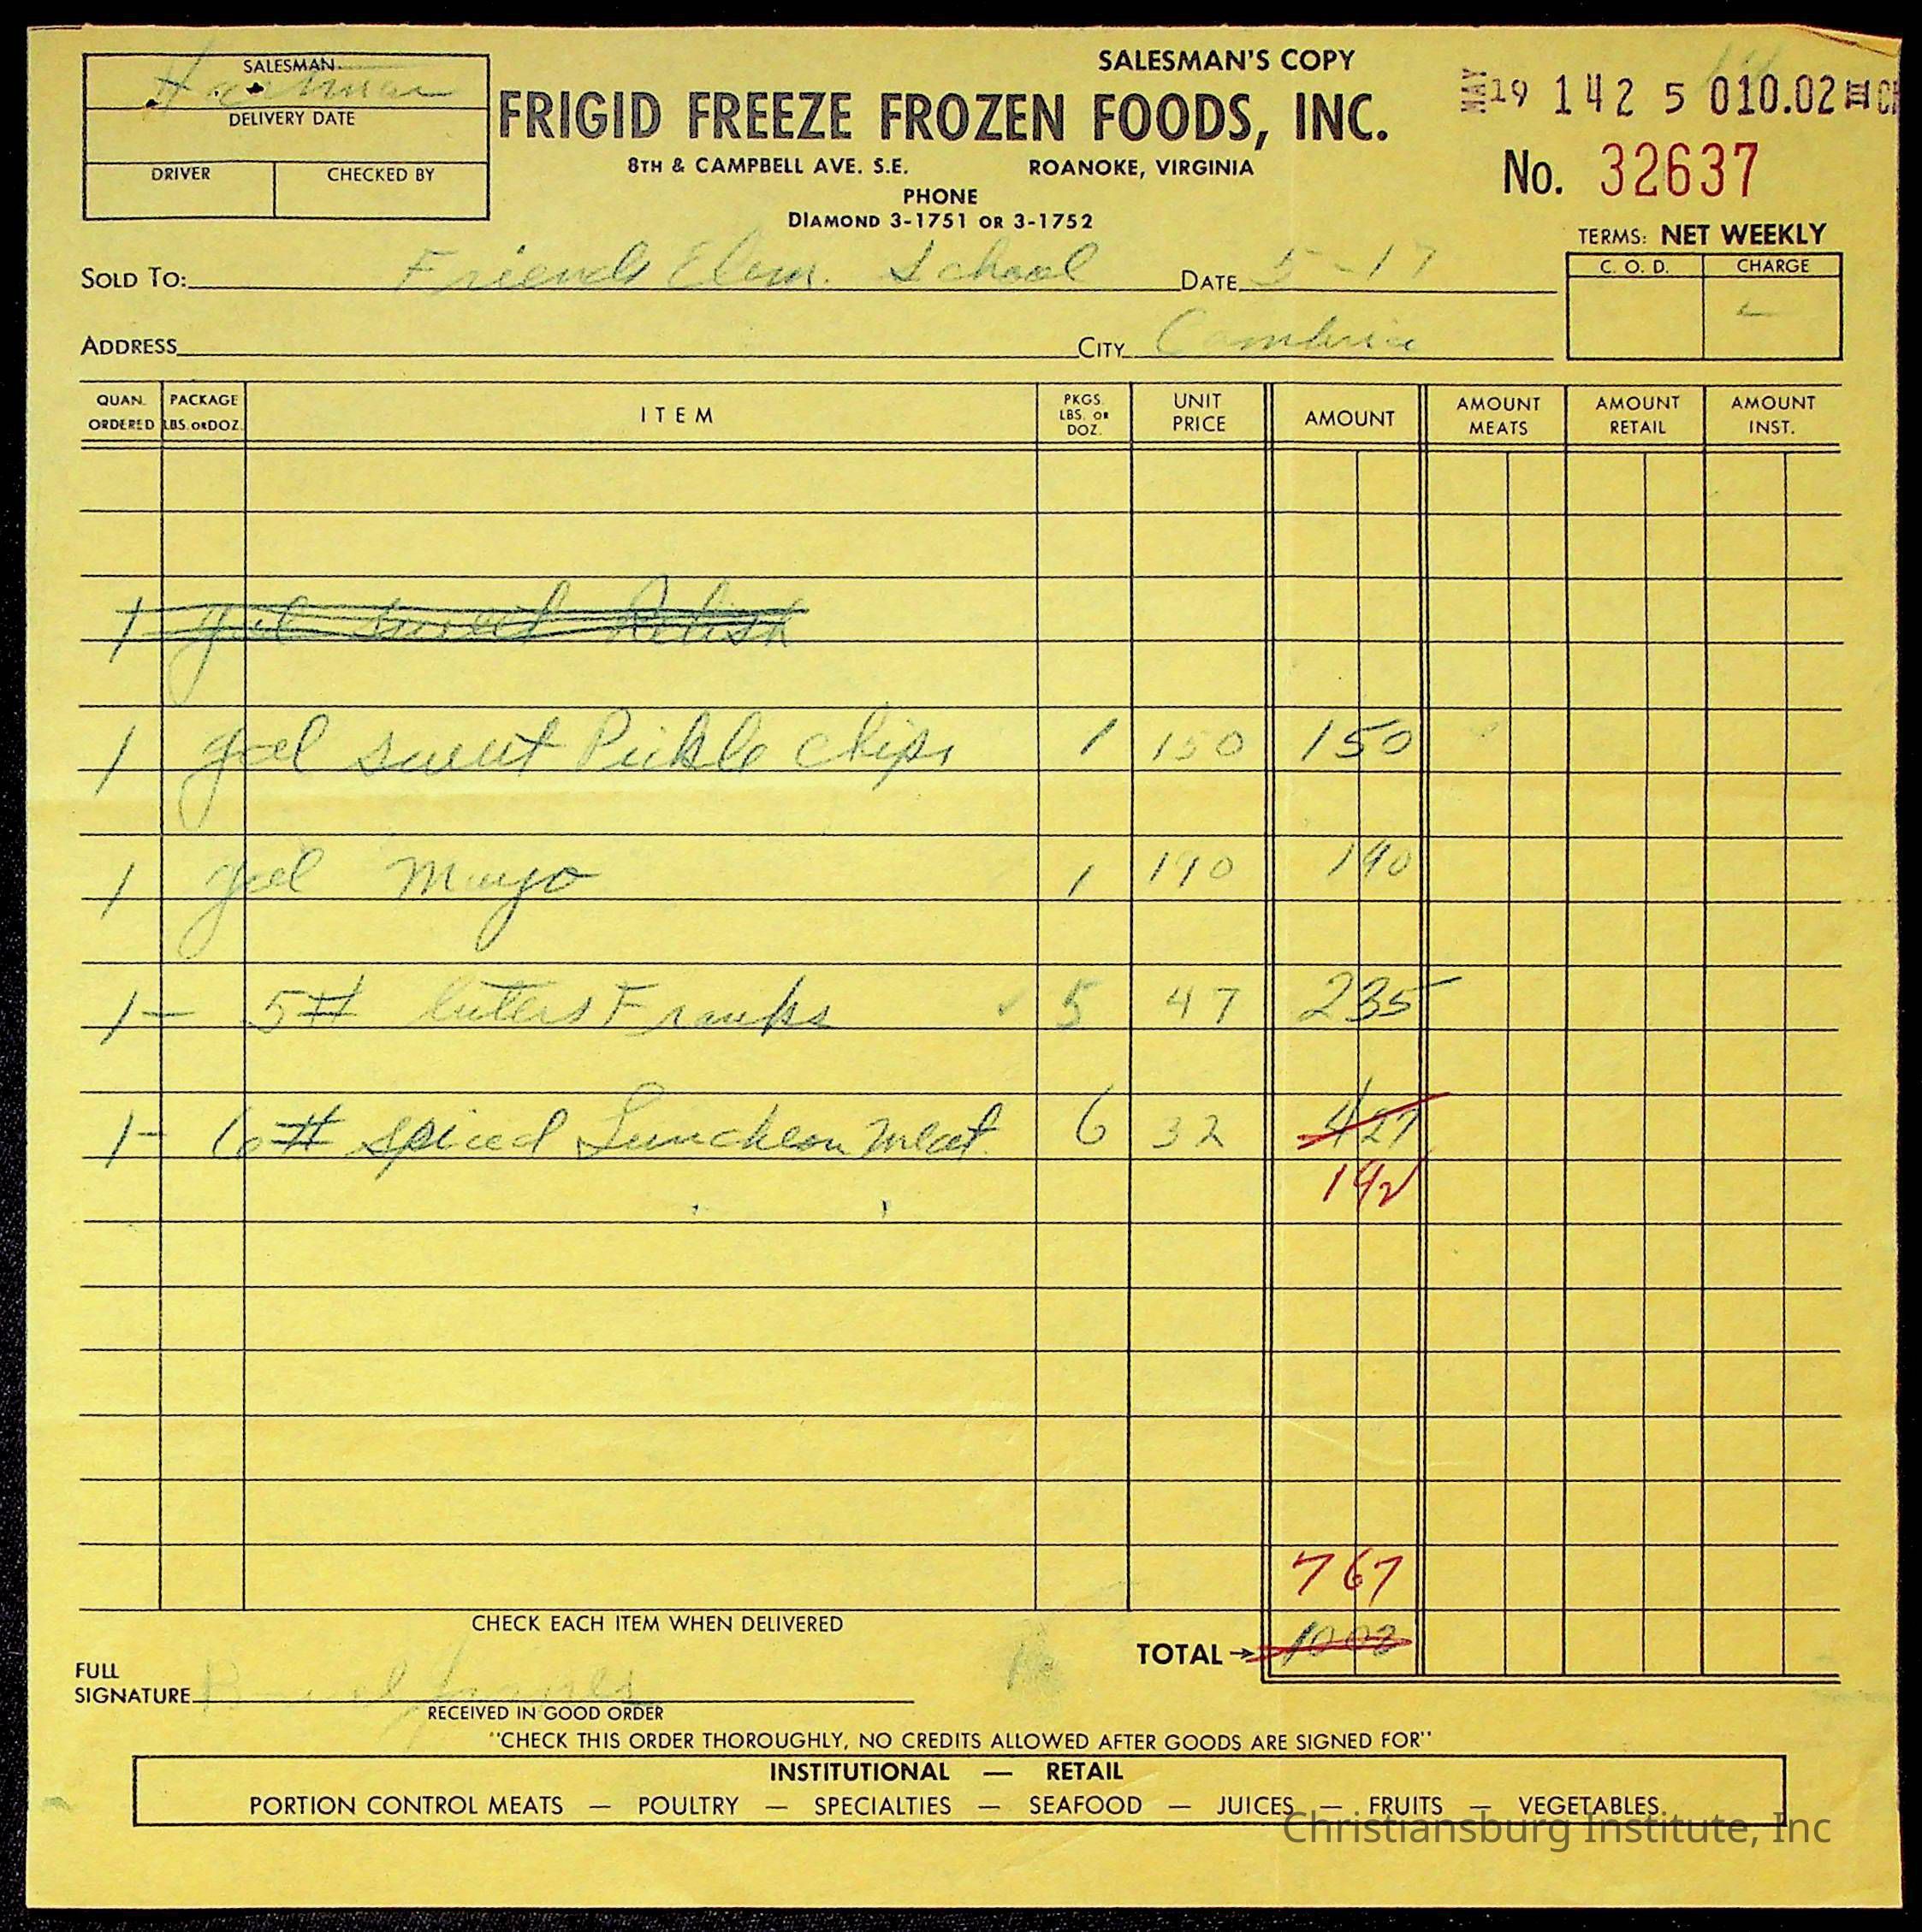 SALESMAN
Hartman
DELIVERY DATE
DRIVER
CHECKED BY
SALESMAN'S COPY
FRIGID FREEZE FROZEN FOODS, INC.
8TH & CAMPBELL AVE. S.E. ROANOKE, VIRGINIA
PHONE
DIAMOND 3-1751 OR 3-1752
MAY 19 142 5 010.02
No. 32637
TERMS: NET WEEKLY
C. O. D. CHARGE
SOLD TO: Friends Elem. School DATE 5-17
ADDRESS CITY Cambria
QUAN. ORDERED PACKAGE LBS. OR DOZ. ITEM PKGS. LBS. OR DOZ. UNIT PRICE AMOUNT AMOUNT MEATS AMOUNT RETAIL AMOUNT INST.
1 gal sweet Relish
1 gal sweet Pickle Chips 1 150 150
1 gal Mayo 1 190 190
1- 5# Franks 5 47 235
1- 6# spiced Luncheon Meat 6 32 427
192
767
CHECK EACH ITEM WHEN DELIVERED
TOTAL → 1002
FULL SIGNATURE
RECEIVED IN GOOD ORDER
"CHECK THIS ORDER THOROUGHLY, NO CREDITS ALLOWED AFTER GOODS ARE SIGNED FOR"
INSTITUTIONAL — RETAIL
PORTION CONTROL MEATS — POULTRY — SPECIALTIES — SEAFOOD — JUICES — FRUITS — VEGETABLES
Christiansburg Institute, Inc